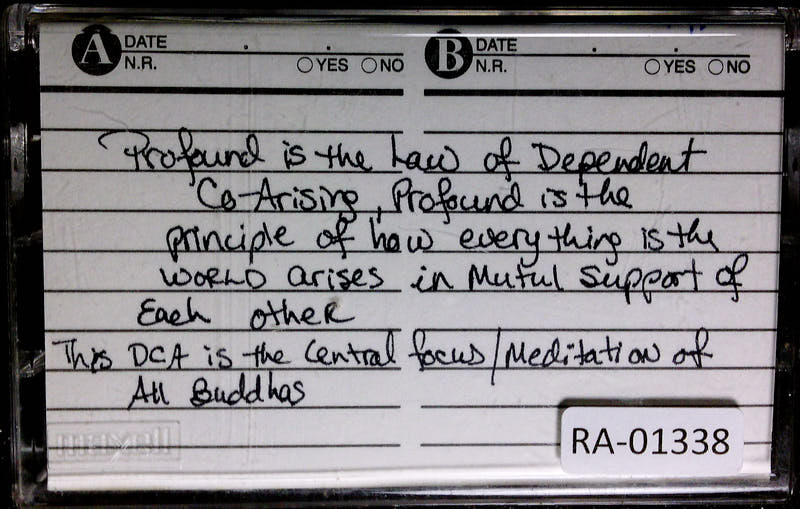 A DATE . . B DATE . .
N.R. ○YES ○NO N.R. ○YES ○NO
Profound is the Law of Dependent
Co-Arising, Profound is the
principle of how everything is the
WORLD arises in Mutul Support of
Each other
This DCA is the Central focus/Meditation of
All Buddhas
maxell
RA-01338